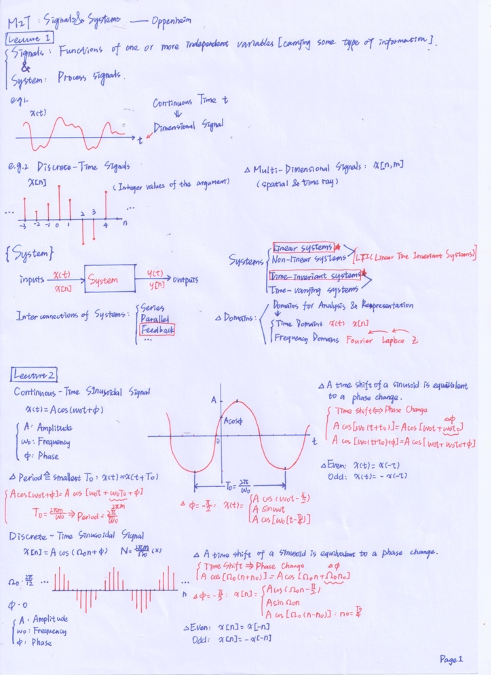 MIT : Signals & Systems — Oppenheim
Lecture 1
Signals : Functions of one or more independent variables [carrying some type of information].
&
System : Process signals.
e.g.1
x(t)
t
Continuous Time t
Dimensional Signal
e.g.2 Discrete-Time Signals
x[n]
(Integer values of the argument)
-3 -2 -1 0 1 2 3 4 n
△ Multi-Dimensional Signals : x[n,m]
(spatial & time ray)
{System}
inputs x(t) x[n] System y(t) y[n] outputs
Systems
Linear systems
Non-linear systems
Time-invariant systems
Time-varying systems
LTI (Linear Time Invariant Systems)
Interconnections of Systems :
Series
Parallel
Feedback
...
△ Domains :
Domains for Analysis & Representation
Time Domains x(t) x[n]
Frequency Domains Fourier Laplace Z
Lecture 2
Continuous-Time Sinusoidal Signal
x(t) = A cos(ω₀t+ϕ)
A : Amplitude
ω₀ : Frequency
ϕ : Phase
A
A cosϕ
t
T₀ = 2π/ω₀
△ A time shift of a sinusoid is equivalent
to a phase change.
Time Shift ⇔ Phase Change
A cos[ω₀(t+t₀)] = A cos[ω₀t+ω₀t₀]
△ϕ
A cos[ω₀(t+t₀)+ϕ] = A cos[ω₀t+ω₀t₀+ϕ]
△ Even : x(t) = x(-t)
Odd : x(t) = -x(-t)
△ Period ≙ smallest T₀ : x(t) = x(t+T₀)
A cos[ω₀t+ϕ] = A cos[ω₀t+ω₀T₀+ϕ]
2πm
T₀ = 2πm/ω₀ ⇒ Period = 2π/ω₀
△ ϕ = -π/2 : x(t) =
A cos(ω₀t-π/2)
A sin ω₀t
A cos[ω₀(t-π/2)]
Discrete-Time Sinusoidal Signal
x[n] = A cos(Ω₀n+ϕ) N = 2πm/Ω₀
Ω₀ : 2π/12
n
ϕ : 0
A : Amplitude
ω₀ : Frequency
ϕ : Phase
△ A time shift of a sinusoid is equivalent to a phase change.
Time Shift ⇒ Phase Change
A cos[Ω₀(n+n₀)] = A cos[Ω₀n+Ω₀n₀]
△ϕ
△ ϕ = -π/2 : x[n] =
A cos(Ω₀n-π/2)
A sin Ω₀n
A cos[Ω₀(n-n₀)] : n₀ =
△ Even : x[n] = x[-n]
Odd : x[n] = -x[-n]
Page.1